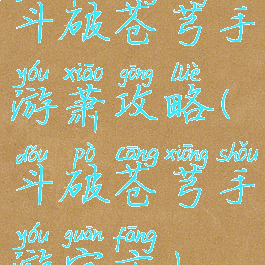 斗破苍芎手
yóu xiāo gōng lüè
游萧攻略(
dǒu pò cāng xiōng shǒu
斗破苍芎手
yóu guān fāng
游官方)